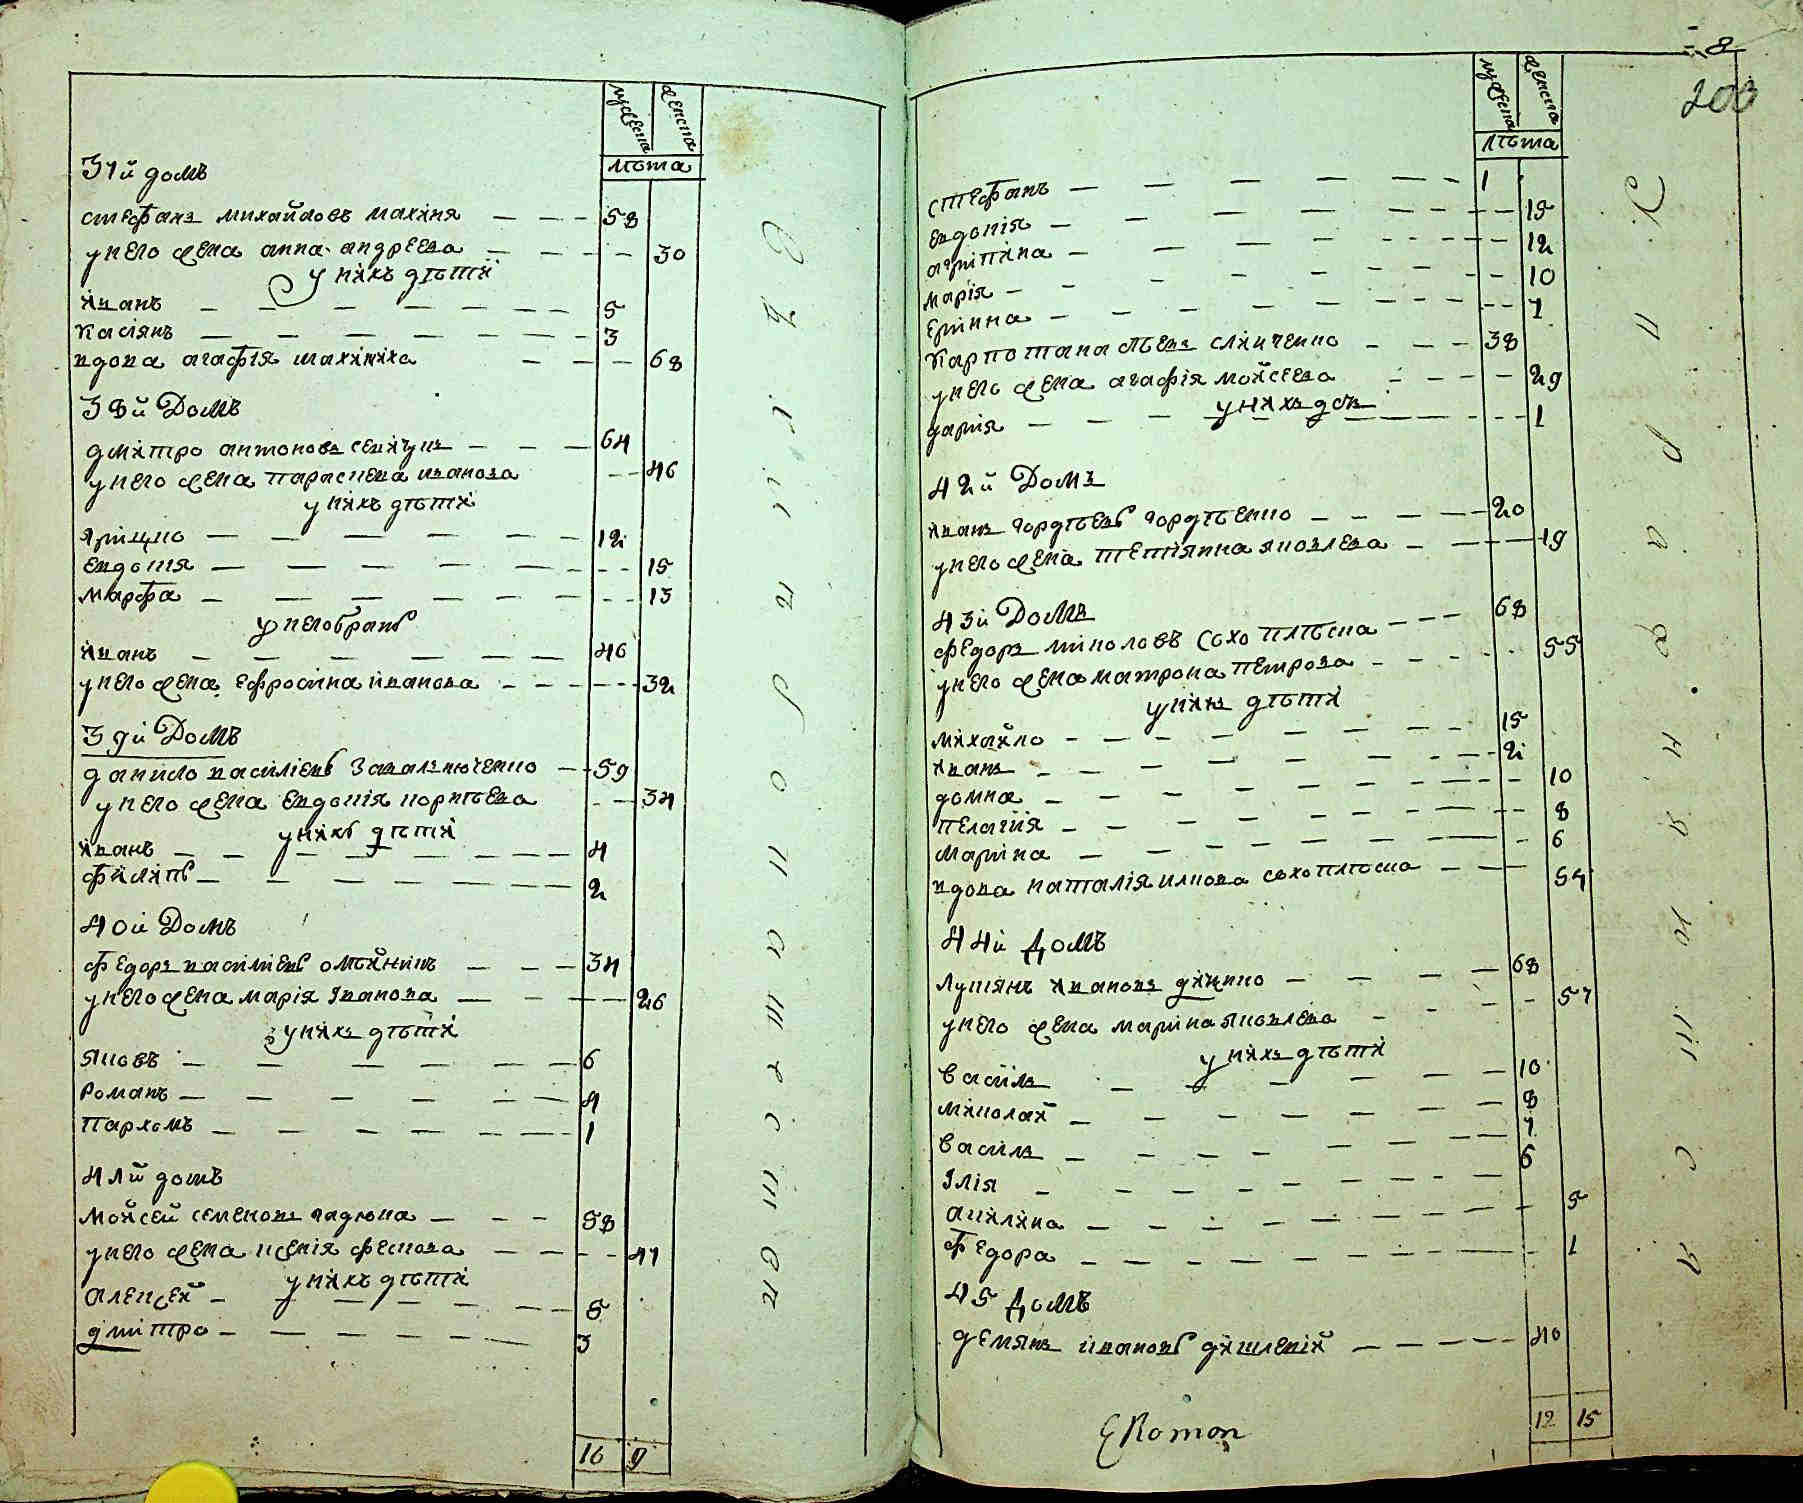 мужеска женска
лѣта
37й домъ
стефанъ михайловъ махиня 58
у него жена анна андреева 30
у нихъ дѣти
иванъ 5
касіянъ 3
вдова агафія махиниха 68
38й Домъ
дмитро антоновъ 64
у него жена параскева иванова 46
у нихъ дѣти
грицко 12
евдокия 15
марфа 13
у него братъ
иванъ 46
у него жена ефросина иванова 32
39й Домъ
данило василіевъ 59
у него жена евдокія корнѣева 34
у нихъ дѣти
иванъ 4
филипъ 2
40й Домъ
федоръ василіевъ 34
у него жена марія Іванова 26
у нихъ дѣти
яковъ 6
романъ 4
пархомъ 1
41й домъ
мойсей семеновъ гадюка 58
у него жена ксенія фескова 47
у нихъ дѣти
алексей 5
дмитро 3
16 9
8
203
мужеска женска
лѣта
стефанъ 1
евдокія 15
агрипина 12
марія 10
ірина 7
карпо танасѣевъ слинченко 38
у него жена агафія мойсеева 29
у нихъ дочь
дария 1
42й Домъ
иванъ гордѣевъ гордѣенко 20
у него жена тетияна яковлева 19
43й Домъ
федоръ миколовъ сохоплѣсна 68
у него жена матрона петрова 55
у нихъ дѣти
михайло 15
иванъ 2
домна 10
пелагія 8
марина 6
вдова наталія сохоплѣсна 54
44й Домъ
лукіянъ ивановъ 68
у него жена марина яковлева 57
у нихъ дѣти
василь 10
миколай 8
василь 7
Ілія 6
акилина 5
федора 1
45 Домъ
демянъ ивановъ 40
12 15